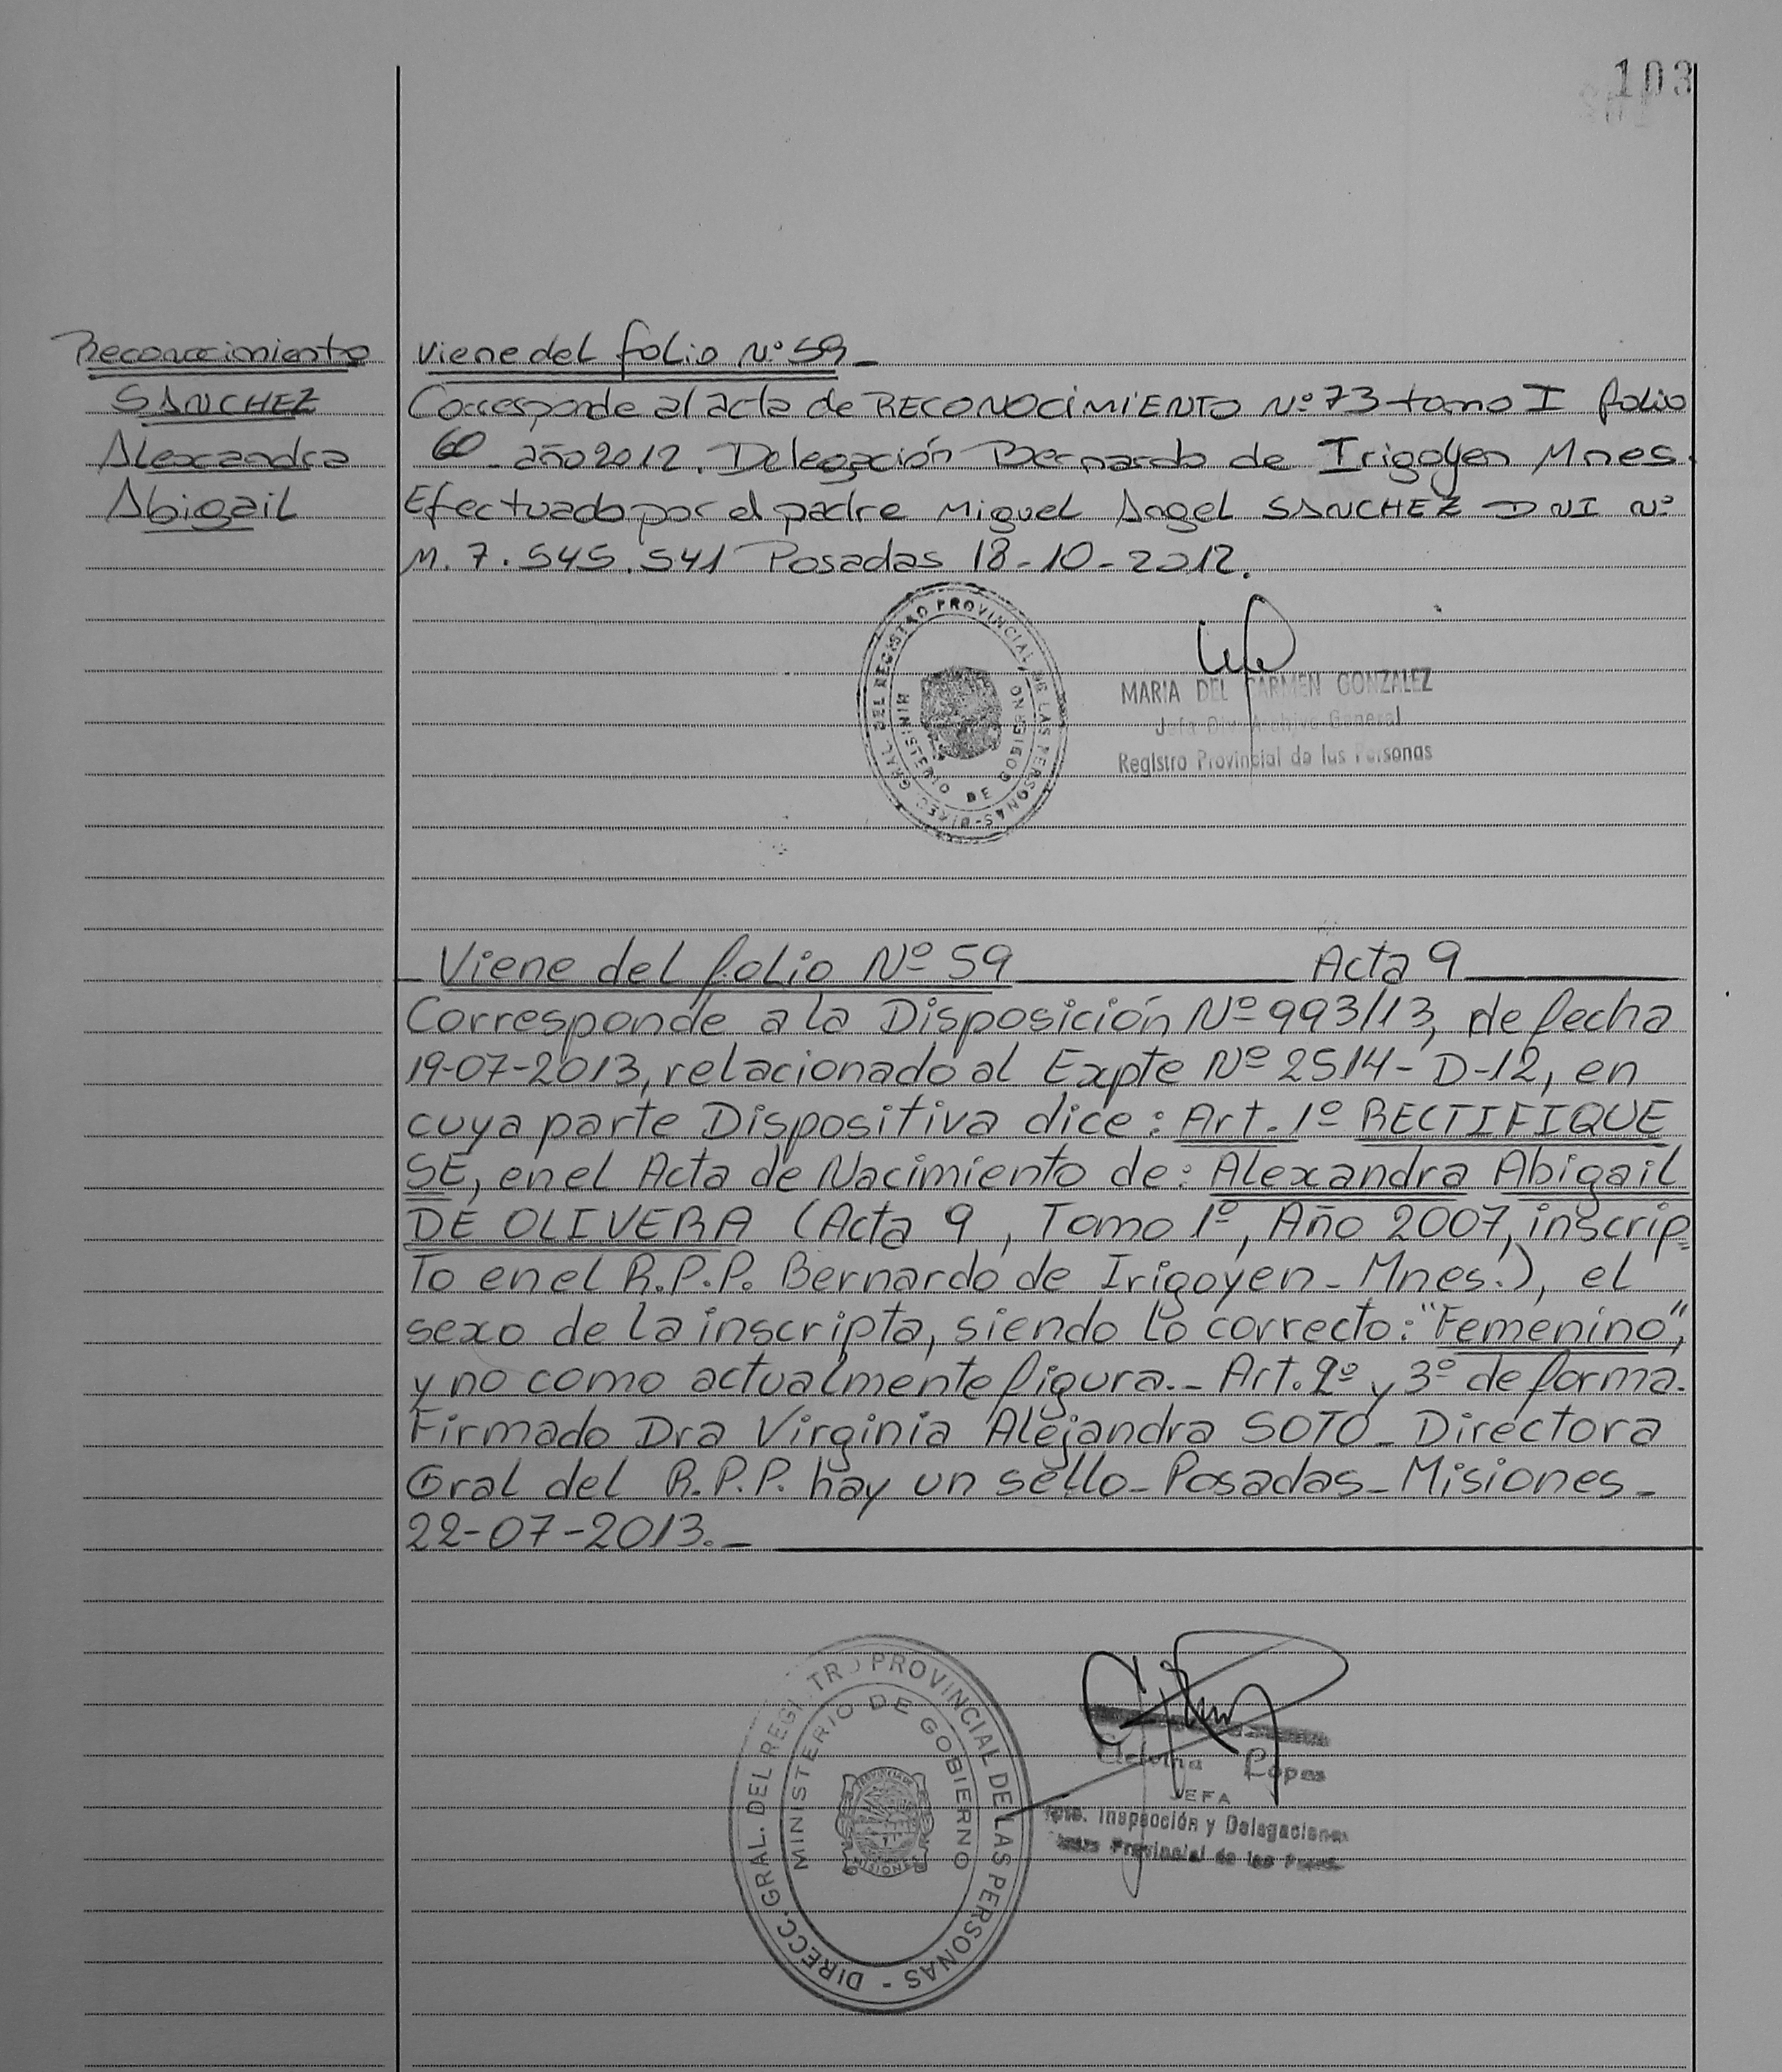 103
Reconocimiento
SANCHEZ
Alexandra
Abigail
Viene del folio Nº 59_
Corresponde al acta de RECONOCIMIENTO Nº 73 tomo I folio
60 - año 2012. Delegación Bernardo de Irigoyen Mnes.
Efectuado por el padre Miguel Angel SANCHEZ DNI Nº
M. 7.545.541 Posadas 18-10-2012.
DIREC. GRAL. DEL REGISTRO PROVINCIAL DE LAS PERSONAS
MINISTERIO DE GOBIERNO
MARIA DEL CARMEN GONZALEZ
Jefa Div. Archivo General
Registro Provincial de las Personas
_Viene del folio Nº 59 Acta 9
Corresponde a la Disposición Nº 993/13, de fecha
19-07-2013, relacionado al Expte Nº 2514-D-12, en
cuya parte Dispositiva dice: Art. 1º RECTIFIQUE
SE, en el Acta de Nacimiento de: Alexandra Abigail
DE OLIVERA (Acta 9, Tomo 1º, Año 2007, inscrip=
To en el R.P.P. Bernardo de Irigoyen - Mnes.), el
sexo de la inscripta, siendo lo correcto: "Femenino",
y no como actualmente figura._ Art. 2º y 3º de forma.
Firmado Dra Virginia Alejandra SOTO_ Directora
Gral del R.P.P. hay un sello_ Posadas_ Misiones_
22-07-2013._
DIRECC. GRAL. DEL REGISTRO PROVINCIAL DE LAS PERSONAS -
MINISTERIO DE GOBIERNO
PROVINCIA DE
MISIONES
JEFA
Dpto. Inspección y Delegaciones
Provincial de las